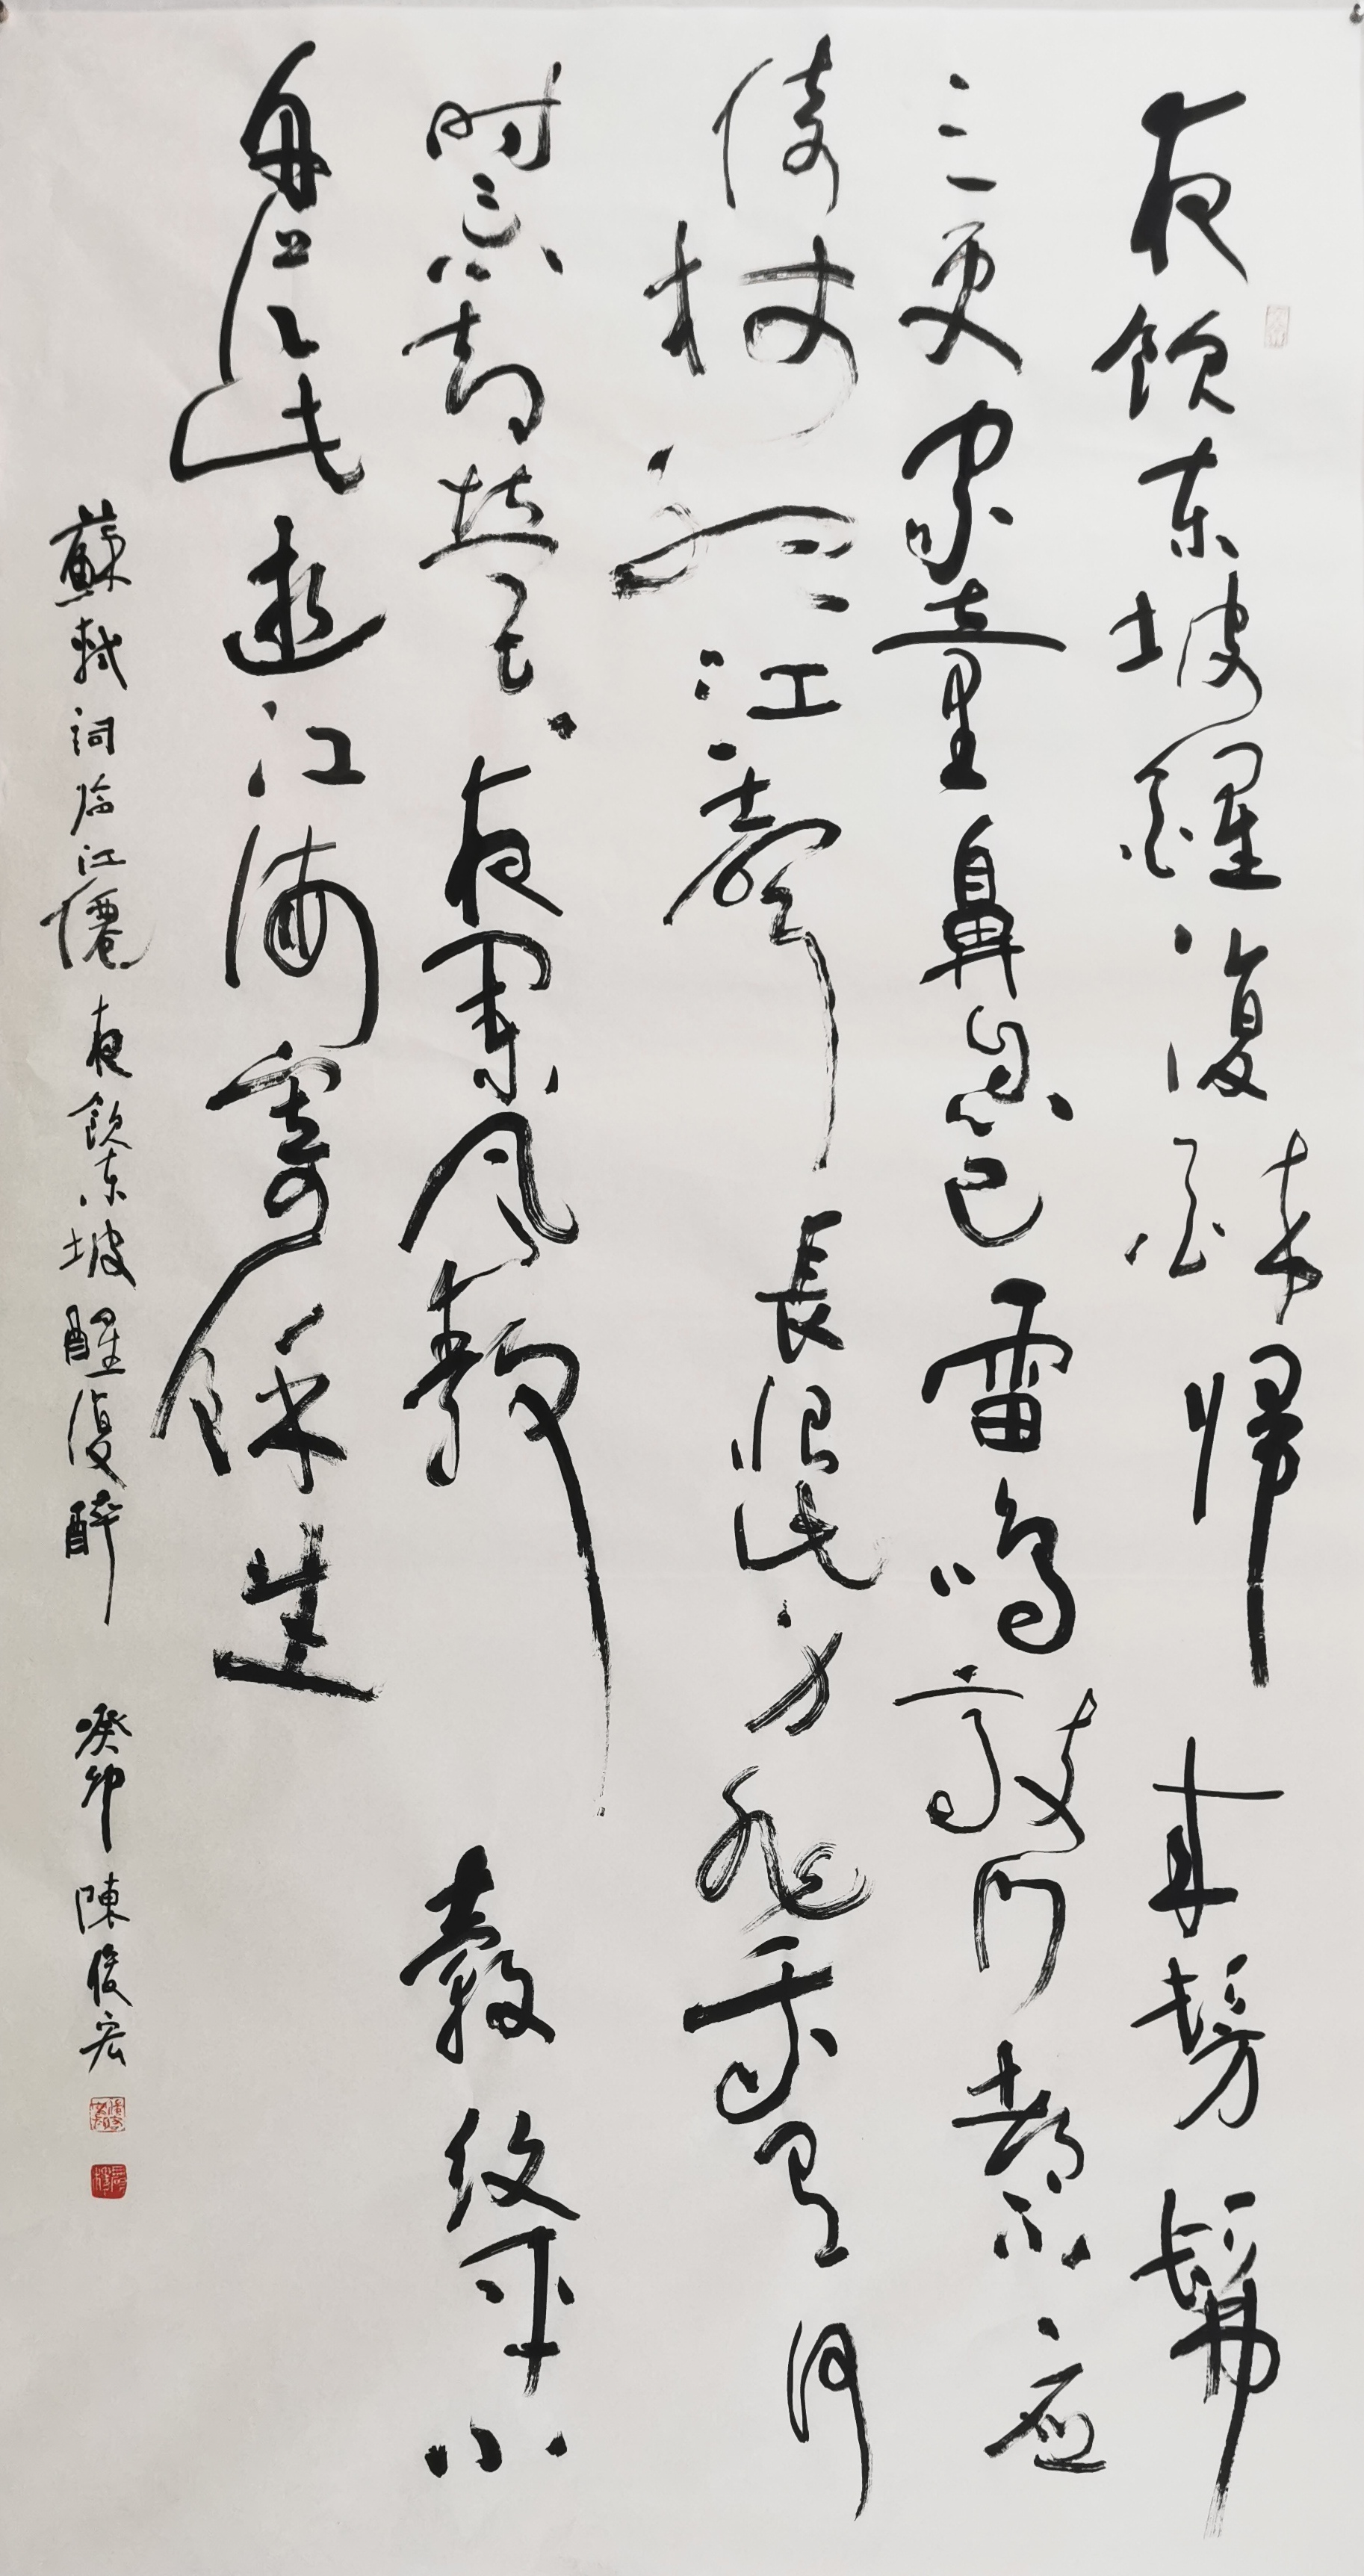 夜飲東坡醒復醉歸來髣髴
三更家童鼻息已雷鳴敲門都不應
倚杖聽江聲長恨此身非我有何
時忘却營營夜闌風靜縠紋平小
舟從此逝江海寄餘生
蘇軾詞臨江僊夜飲東坡醒復醉 癸卯 陳俊宏